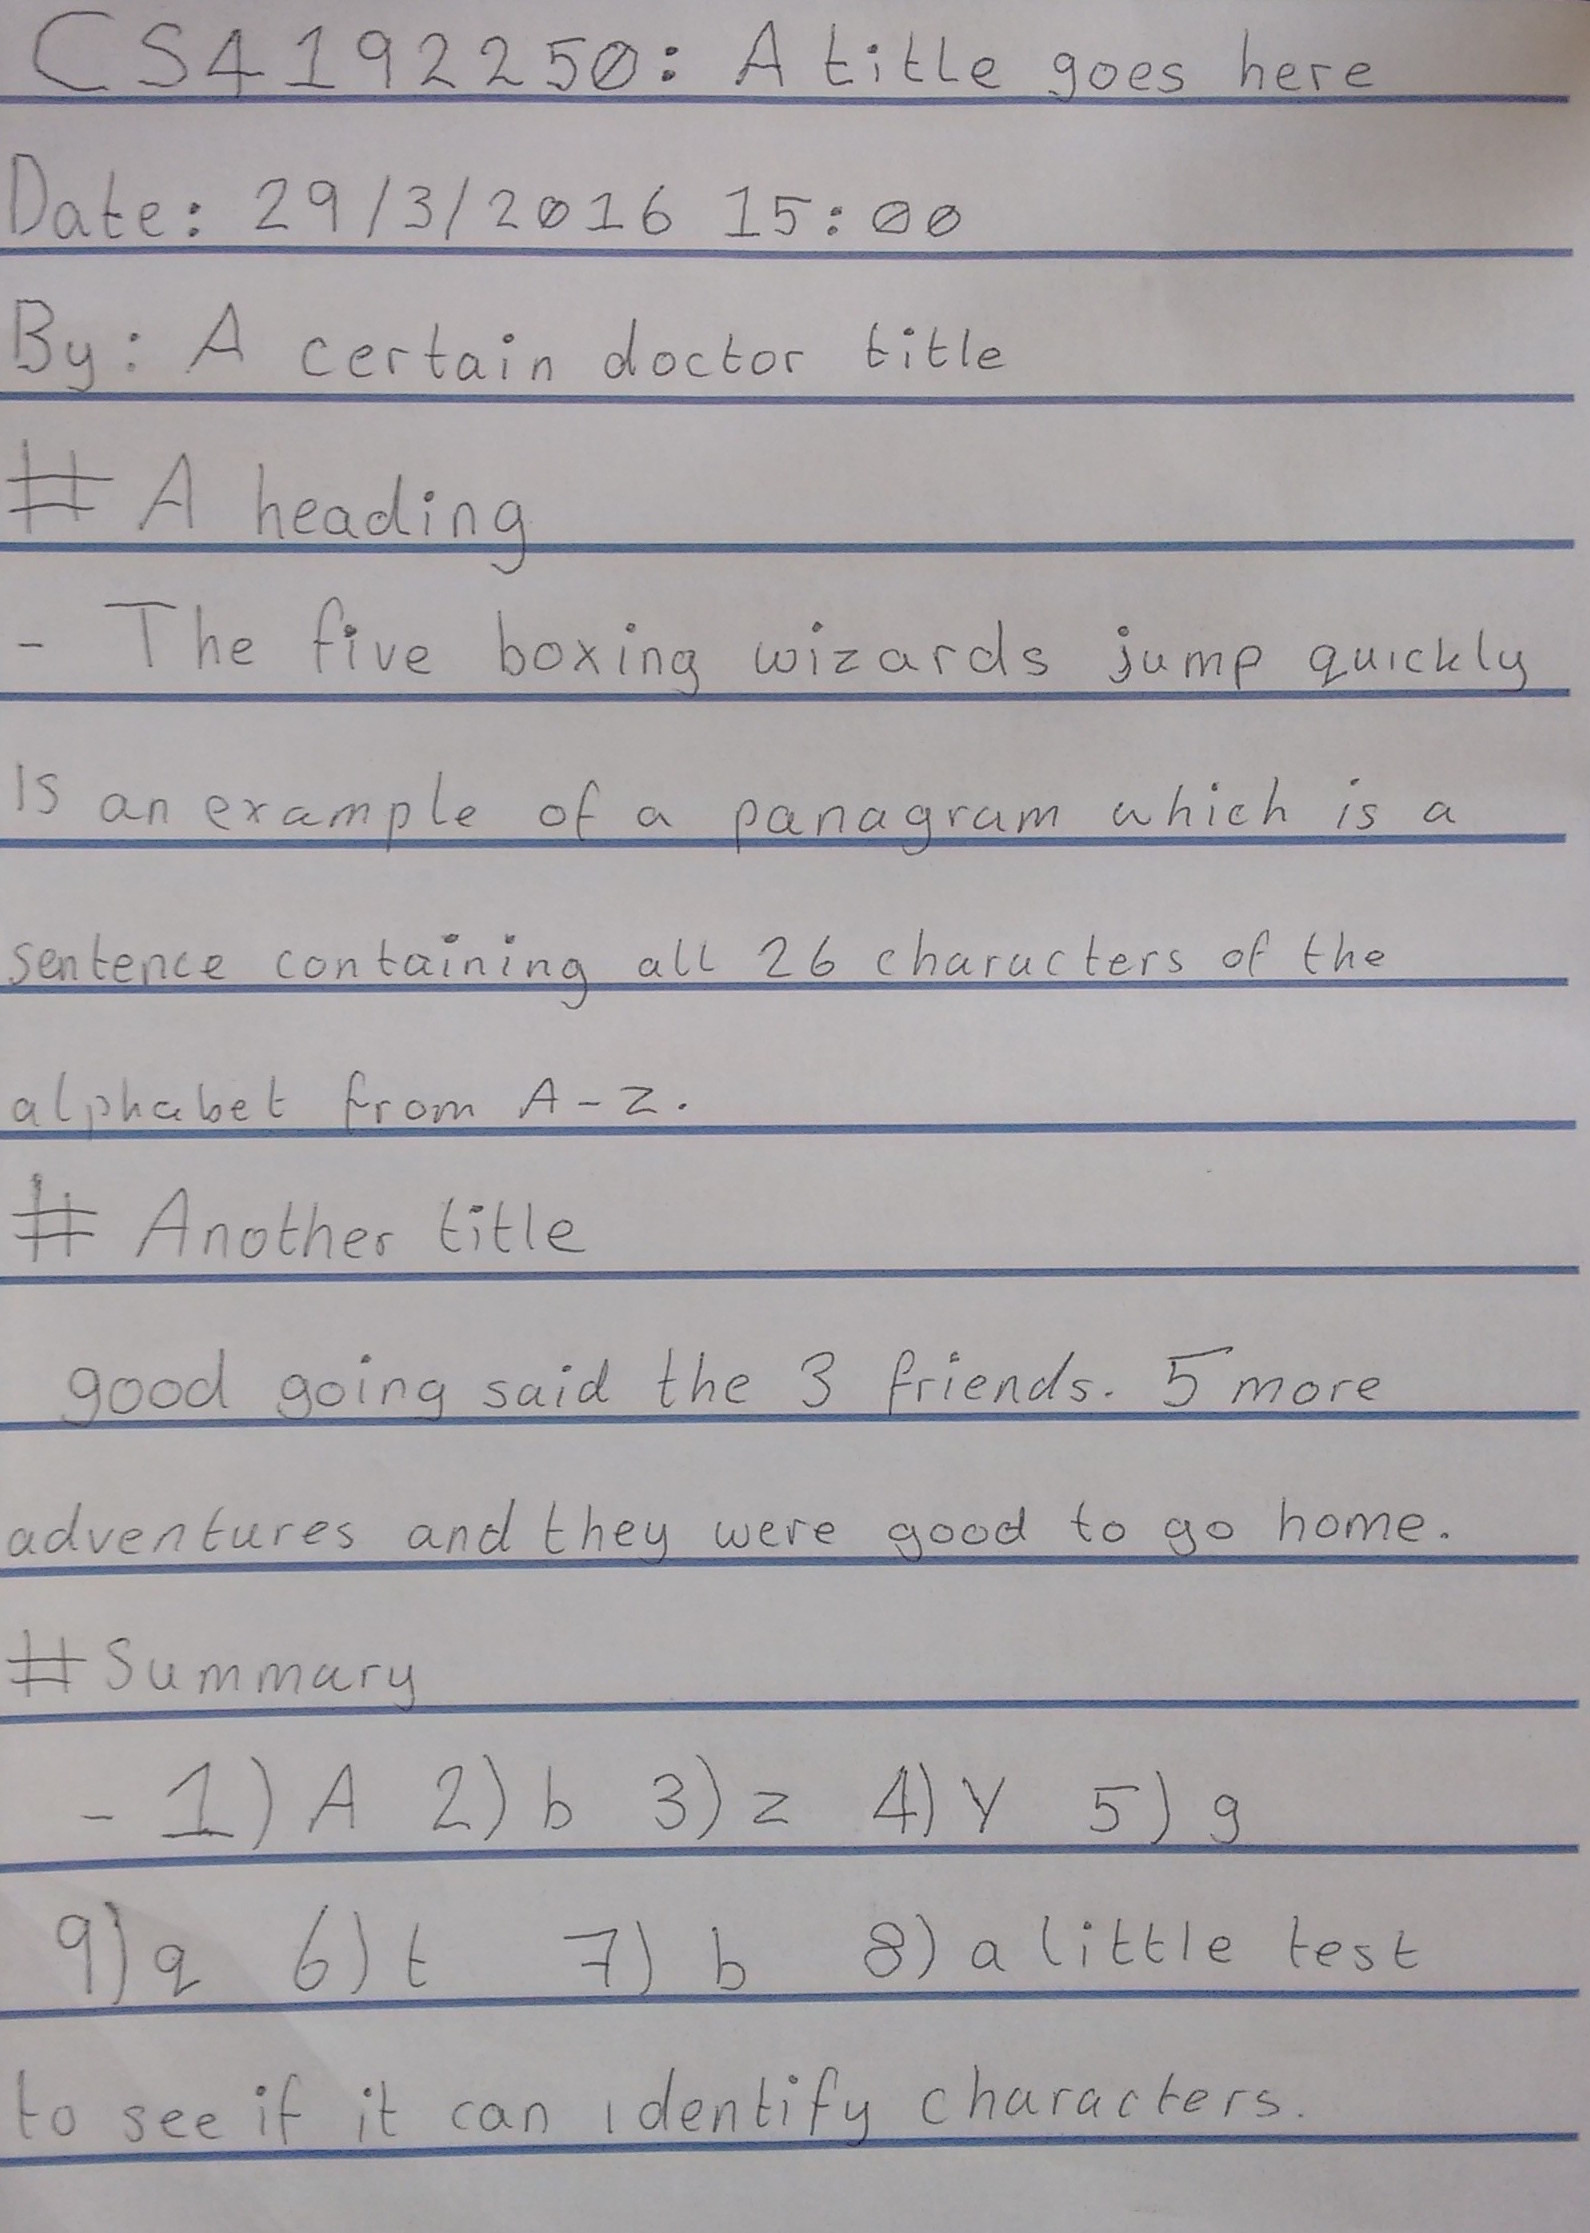 CS4192250: A title goes here
Date: 29/3/2016 15:00
By: A certain doctor title
# A heading
- The five boxing wizards jump quickly
Is an example of a panagram which is a
sentence containing all 26 characters of the
alphabet from A-Z.
# Another title
good going said the 3 friends. 5 more
adventures and they were good to go home.
# Summary
- 1) A 2) b 3) z 4) Y 5) g
9) q 6) t 7) b 8) a little test
to see if it can identify characters.